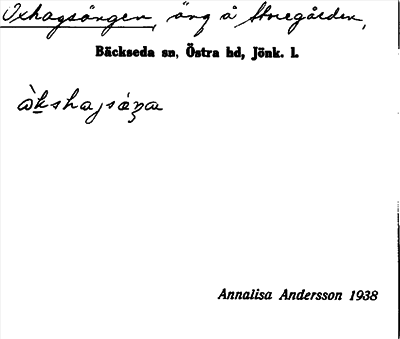 Oxhagsängen, äng å Storegården,
Bäckseda sn, Östra hd, Jönk. l.
Annalisa Andersson 1938